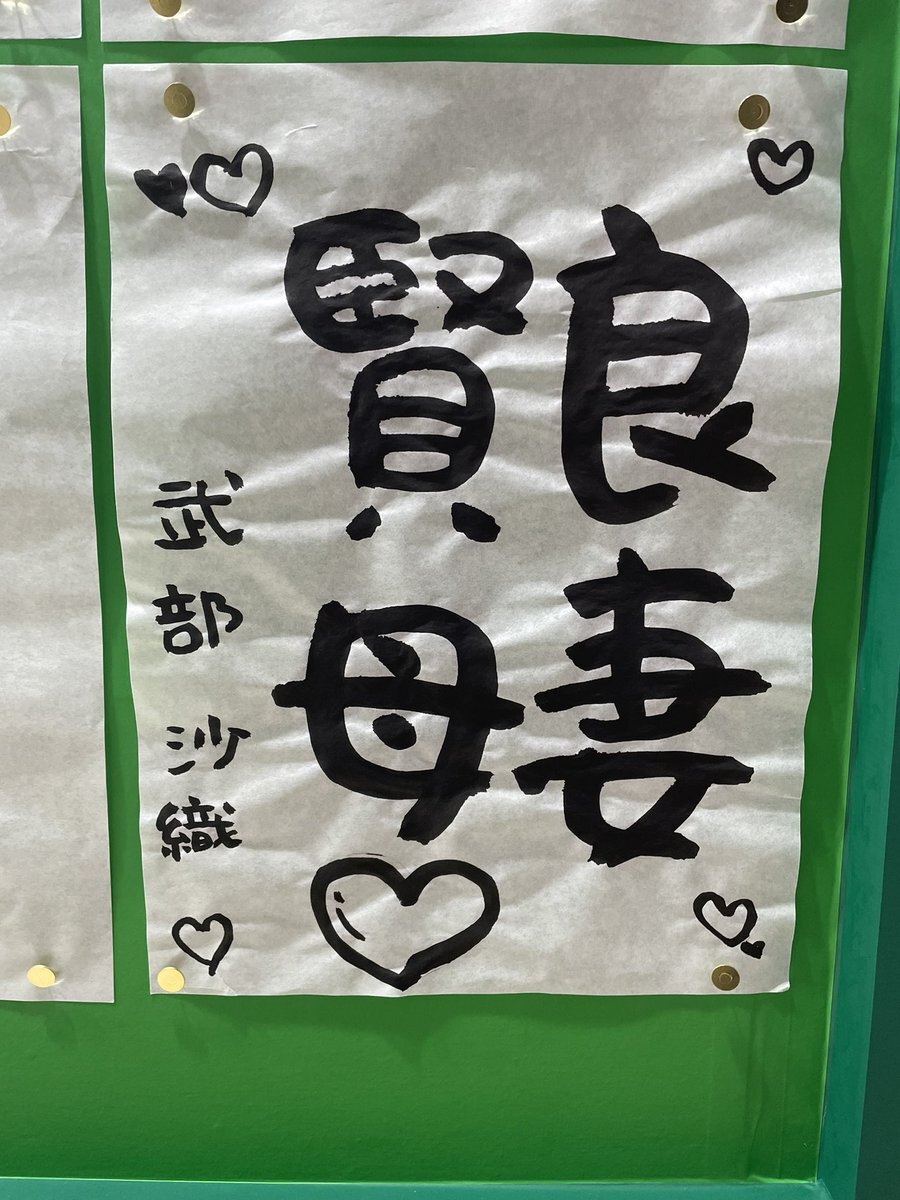 良妻
賢母
武部沙織